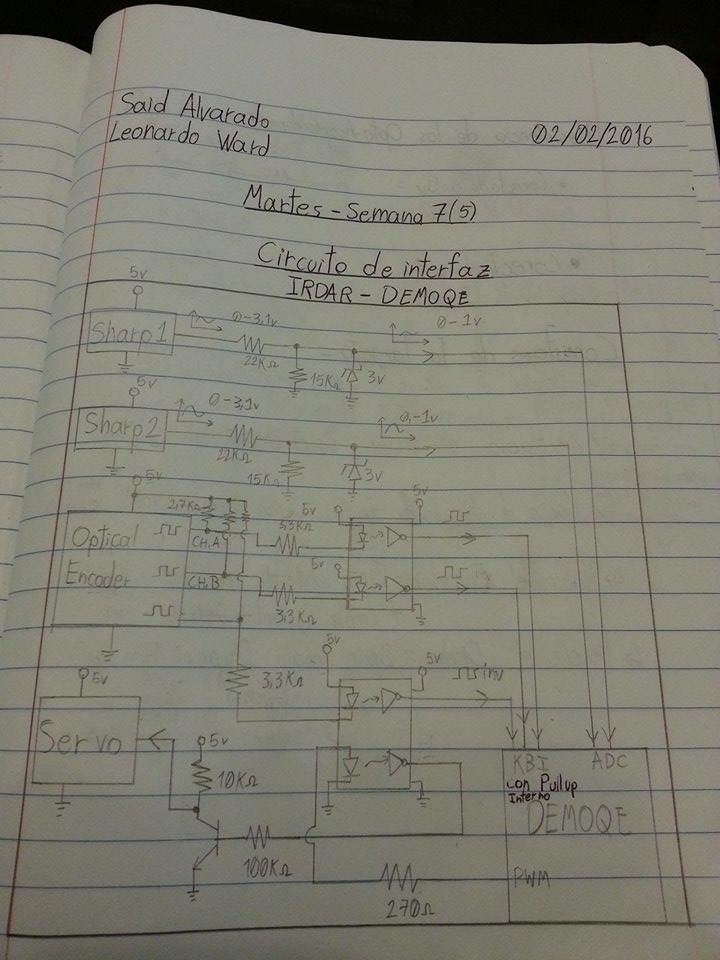 Said Alvarado
Leonardo Ward
02/02/2016
Martes - Semana 7(5)
Circuito de interfaz
IRDAR - DEMOQE
5v
Sharp1
0-3,1v
22KΩ
15KΩ
3v
0-1v
5v
Sharp2
0-3,1v
22KΩ
15KΩ
3v
0,-1v
5v
2,7KΩ
Optical
Encoder
CH.A
CH.B
3,3KΩ
3,3KΩ
5v
5v
5v
3,3KΩ
5v
5v
inv
5v
Servo
5v
10KΩ
100KΩ
270Ω
KBI
con Pullup
Interno
ADC
DEMOQE
PWM